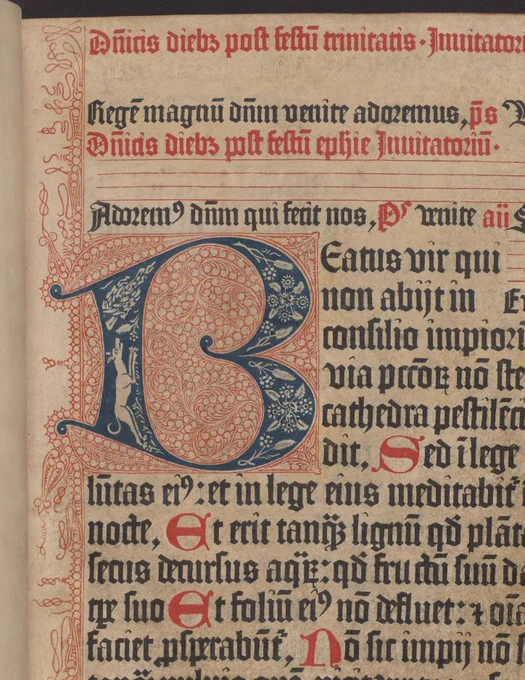 Dñicis diebȝ post festū trinitatis · Inuitator
Regē magnū dñm venite adoremus, p̄s V
Dñicis diebȝ post festū ephie Inuitatoriū ·
Adoremꝰ dñm qui fecit nos, Pˢ venite aū S
BEatus vir qui
non abijt in E
consilio impior
via pccōꝝ nō ste
cathedra pestilēc
dit, Sed ī lege
lūtas eiꝰ: et in lege eius meditabit᷑
nocte, Et erit tanqȝ lignū qď plāt
secus decursus aqꝝ: qď fructū suū d
tp̱e suo Et foliū eiꝰ nō defluet: ⁊ oīa
faciet ꝓsꝑabūt᷑, Nō sic impij nō